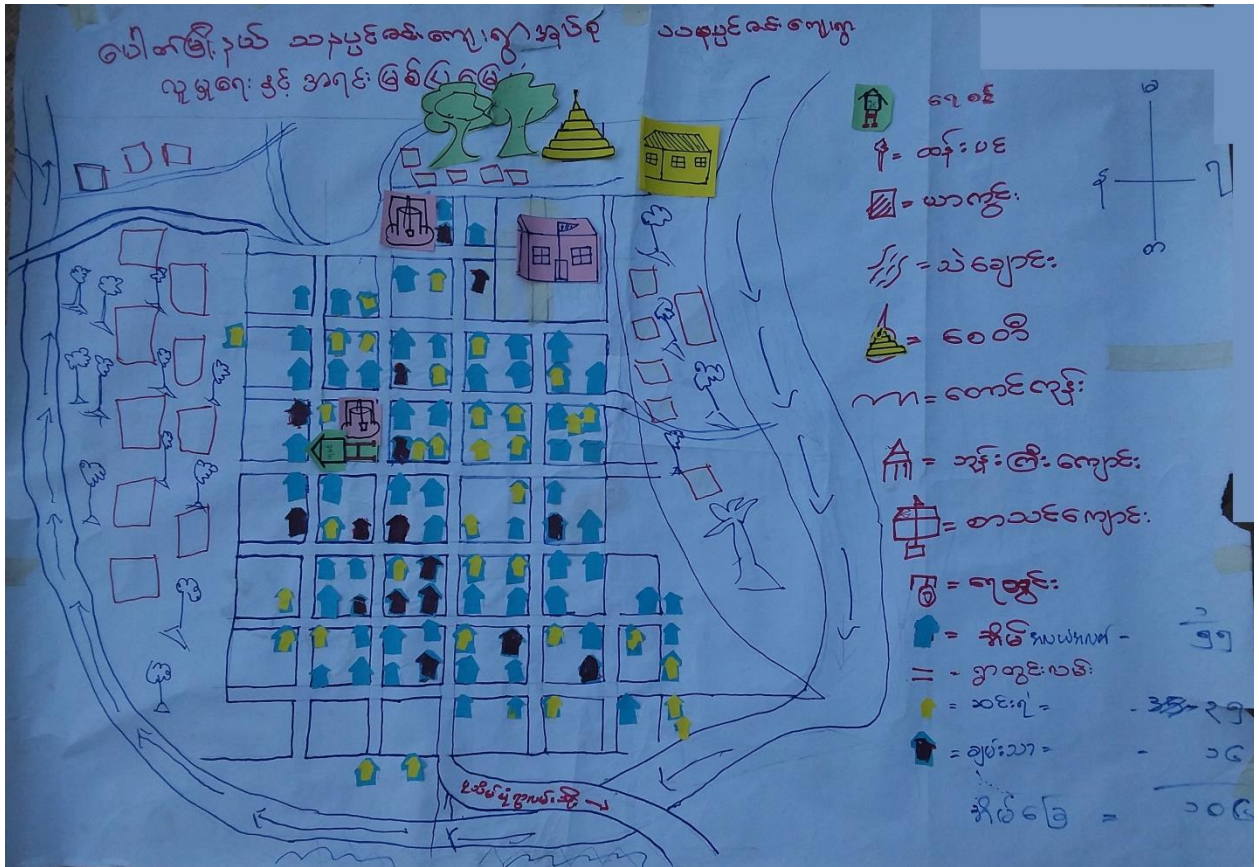 ပေါက်မြို့နယ် သနပ္ပင်ခင်းကျေးရွာအုပ်စု သနပ္ပင်ခင်းကျေးရွာ
လူမှုရေးနှင့် အရင်းမြစ်ပြမြေပုံ
ရေစင်
= ထန်းပင်
= ယာကွင်း
= သဲချောင်း
= စေတီ
= တောင်ကုန်း
= ဘုန်းကြီးကျောင်း
= စာသင်ကျောင်း
= ရေတွင်း
= အိမ် အလယ်အလတ် -
= - ရွာတွင်းလမ်း
= ဆင်းရဲ =
= ချမ်းသာ = - ၁၆
အိမ်ခြေ =